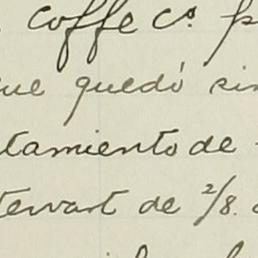 coffe Co. p
ue quedó sin
tamiento de
tewart de 2/8.